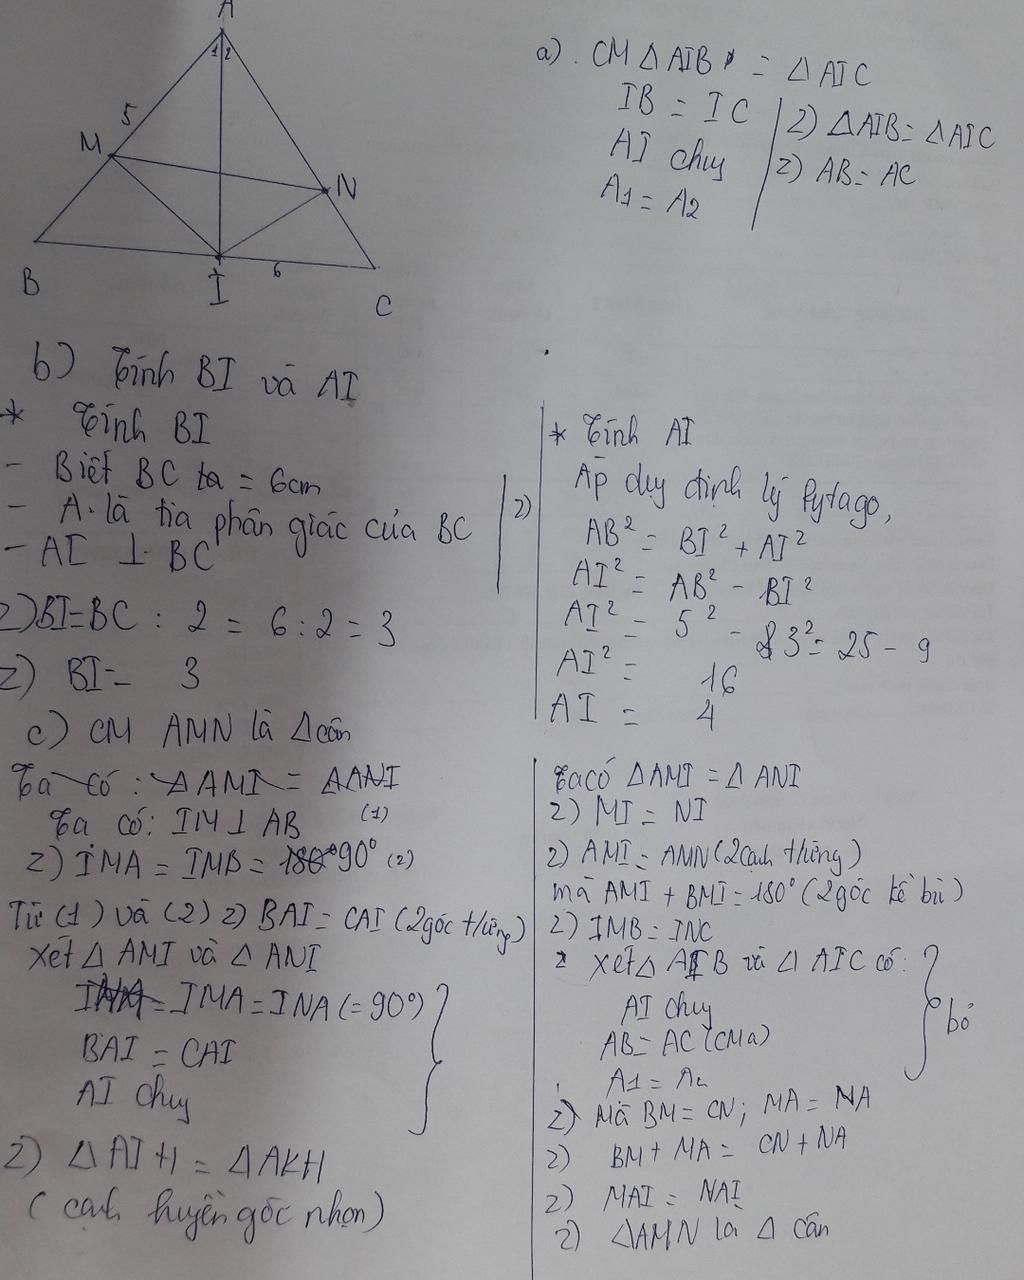 A
1 2
5
M
N
B
I
6
C
a). CM Δ AIB = Δ AIC
IB = IC
AI chug
A1 = A2
2) ΔAIB = ΔAIC
2) AB = AC
b) Tính BI và AI
* Tính BI
- Biết BC ta = 6cm
- A. là tia phân giác của BC
- AI ⊥ BC
2)
2) BI = BC : 2 = 6 : 2 = 3
2) BI = 3
* Tính AI
Áp dụg định lý Pytago,
AB² = BI² + AI²
AI² = AB² - BI²
AI² = 5² - 3² = 25 - 9
AI² = 16
AI = 4
c) CM AMN là Δ cân
Ta có : Δ AMI = ΔANI
Ta có: IM ⊥ AB (1)
2) IMA = IMB = 90° (2)
Từ (1) và (2) 2) BAI = CAI (2góc t/ứng)
Xét Δ AMI và Δ ANI
IMA = INA (= 90°)
BAI = CAI
AI chug
2) Δ AIH = ΔAKH
( cạnh huyền góc nhọn)
Ta có Δ AMI = Δ ANI
2) MI = NI
2) AMI = AMN (2 cạnh t/ứng)
mà AMI + BMI = 180° (2góc kề bù)
2) IMB = INC
2 Xét Δ AIB và Δ AIC có:
AI chug
AB = AC (CMa)
A1 = A2
bỏ
2) Mà BM = CN; MA = NA
2) BM + MA = CN + NA
2) MAI = NAI
2) ΔAMN là Δ cân